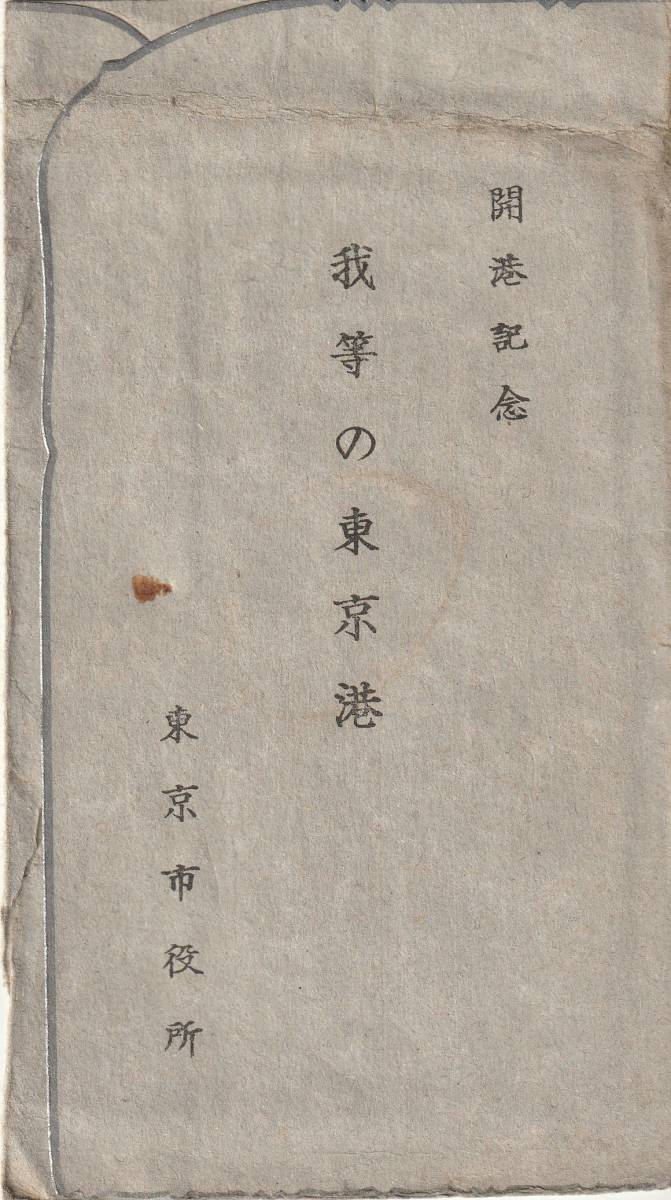 開港記念
我等の東京港
東京市役所